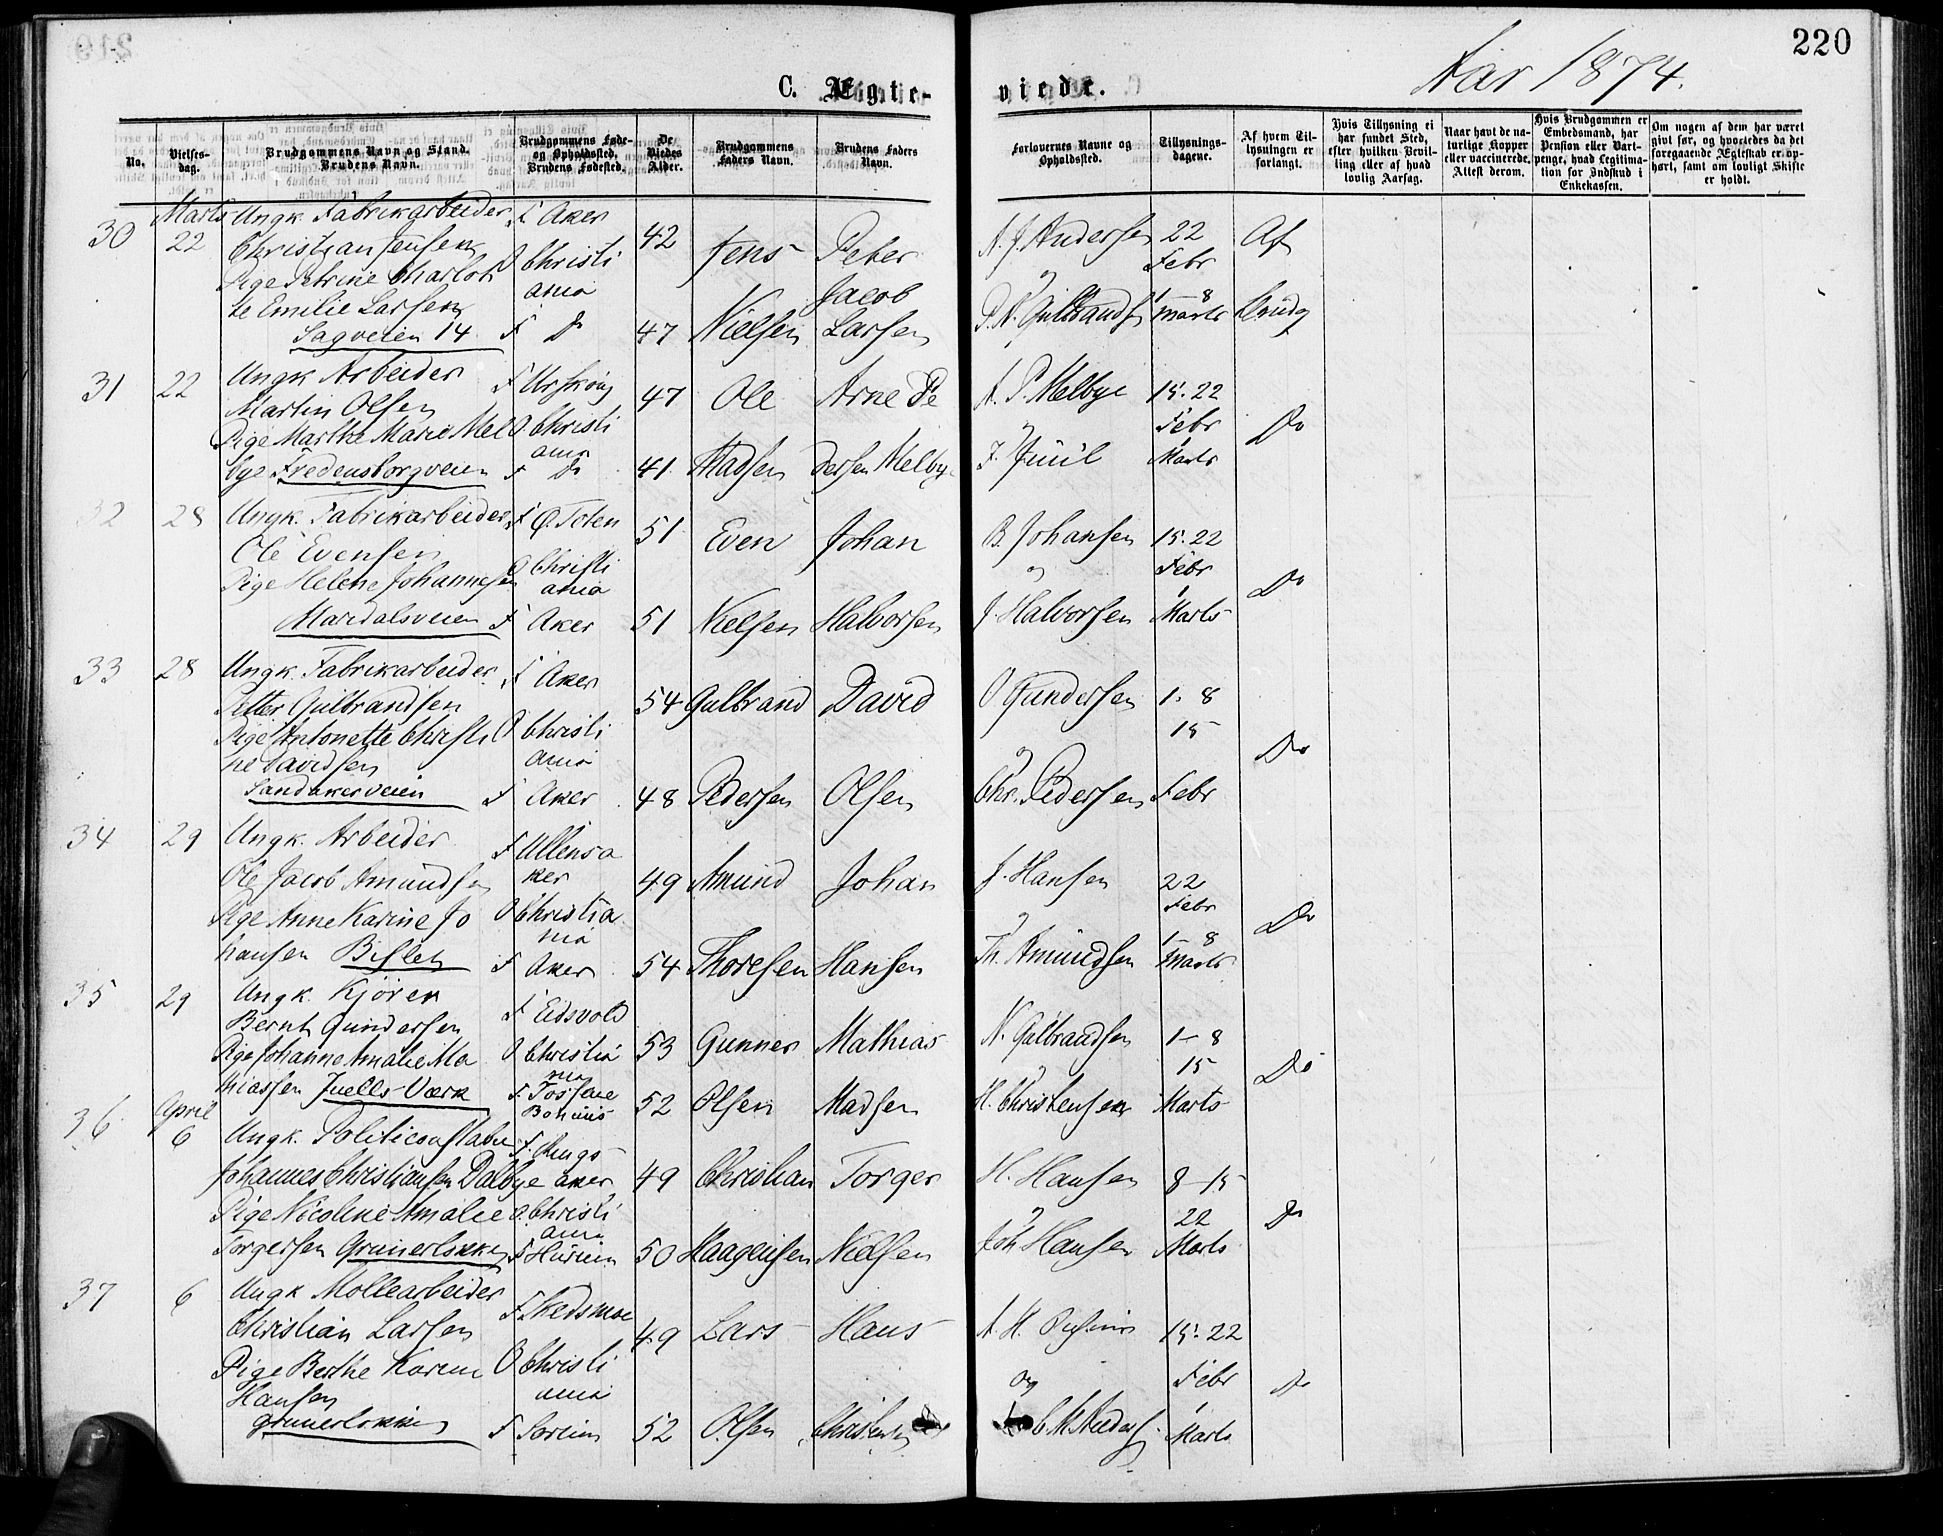 220
Aar 1874.
C. Ægte-
viede.
No.
Vielses-
dag.
Brudgommens Navn og Stand.
Brudens Navn.
Brudgommens Føde-
og Opholdssted.
Brudens Fødested.
De
Viedes
Alder.
Brudgommens
Faders Navn.
Brudens Faders
Navn.
Forlovernes Navne og
Opholdssted.
Tillysnings-
dagene.
Af hvem Til-
lysningen er
forlangt.
Hvis Tillysning ei
har fundet Sted,
efter hvilken Bevil-
ling eller af hvad
lovlig Aarsag.
Naar havt de na-
turlige Kopper
eller vaccinerede,
Attest derom.
Hvis Brudgommen er
Embedsmand, har
Pension eller Vart-
penge, hvad Legitima-
tion for Indskud i
Enkekassen.
Om nogen af dem har været
gift før, og hvorledes da det
foregaaende Ægteskab er op-
hørt, samt om lovligt Skifte
er holdt.
30 Marts 22
Ungk. Fabrikarbeider
Christian Jensen
Pige Petrine Charlot
te Emilie Larsen
Sagveien 14
F Aker
O Christi
ania
F Do
42
47
Jens
Nielsen
Peter
Jacob
Larsen
A. J. Andersen
P. N. Gulbrands
22
Febr
1-8
Marts
Af
Brudg
31 22
Ungk Arbeider
Martin Olsen
Pige Marthe Marie Mel
bye Fredensborgveien
F Urskoug
O Christi
ania
F Do
47
41
Ole
Madsen
Arne Pe
dersen Melbye
A. P. Melbye
F. Juul
15. 22
Febr
1
Marts
Do
32 28
Ungk. Fabrikarbeider
Ole Evensen
Pige Helene Johannesen
Maridalsveien
F Ø. Toten
O Christi
ania
F Aker
51
51
Even
Nielsen
Johan
Halvorsen
B. Johansen
J. Halvorsen
15. 22
Febr
1
Marts
Do
33 28
Ungk. Fabrikarbeider
Petter Gulbrandsen
Pige Antonette Christi
ne Davidsen
Sandakerveien
F Aker
O Christi
ania
F Aker
54
48
Gulbrand
Pedersen
David
Olsen
O Gundersen
Chr. Pedersen
1. 8
15
Febr
Do
34 29
Ungk. Arbeider
Ole Jacob Amundsen
Pige Anne Karine Jo
hansen Bislet
F Ullensa
ker
O Christia
nia
F Aker
49
54
Amund
Thoresen
Johan
Hansen
J. Hansen
Th. Amundsen
22
Febr
1-8
Marts
Do
35 29
Ungk. Kjører
Bernt Gundersen
Pige Johanne Amalie Ma
thiassen Juells Værk
F Eidsvold
O Christia
nia
F. Fossene
53
52
Gunner
Olsen
Mathias
Madsen
N. Gulbrandsen
H. Christensen
1-8
15
Marts
Do
36 April 6
Ungk. Politiconstabel
Johannes Christiansen Dalbye
Pige Nicoline Amalie
Torgersen Grunerløkken
F. Rings
aker
O. Christi
ania
F Hurum
49
50
Christian
Haagensen
Torger
Nielsen
H. Hansen
Joh Hansen
8-15
22
Marts
Do
37 6
Ungk Møllearbeider
Christian Larsen
Pige Berthe Karine
Hansen
Grunerløkken
F. Skedsmoe
O Christi
ania
F Sørum
49
52
Lars
Olsen
Hans
Christensen
A. H.
og
15. 22
Febr
1
Marts
Do